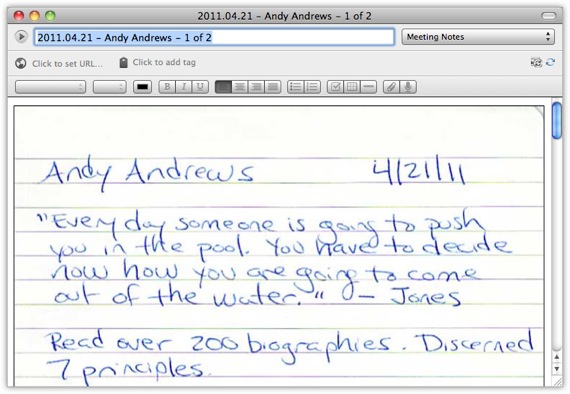 2011.04.21 – Andy Andrews – 1 of 2
2011.04.21 – Andy Andrews – 1 of 2
Meeting Notes
Click to set URL...
Click to add tag
B I U
Andy Andrews 4/21/11
"Every day someone is going to push
you in the pool. You have to decide
now how you are going to come
out of the water." – Jones
Read over 200 biographies. Discerned
7 principles.